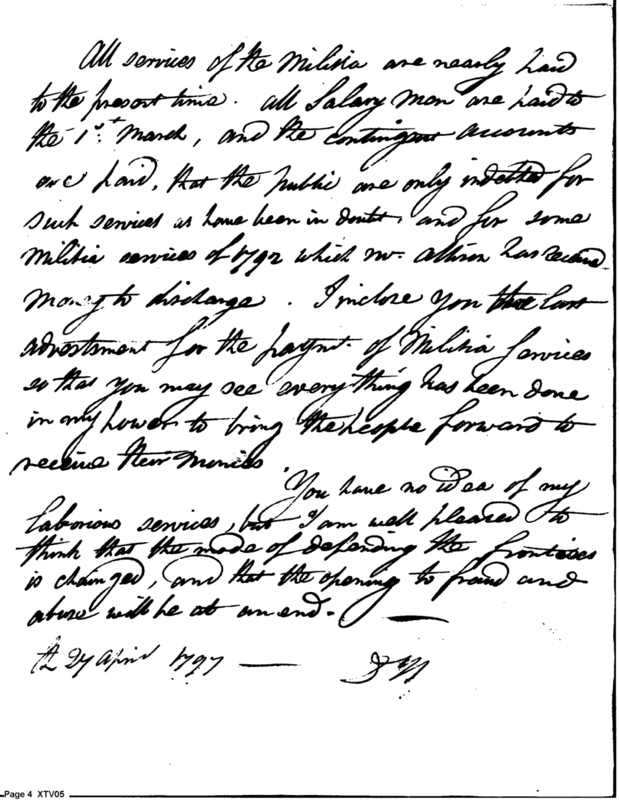 All services of the Militia are nearly paid
to the present time. all Salary men are paid to
the 1st March, and the contingent accounts
are paid, that the public are only indebted for
such services as have been in doubt, and for some
Militia services of 1792 which Mr. Allison has received
Money to discharge. I inclose you the last
advertsment for the paymt. of Militia Services
so that you may see every thing has been done
in my power to bring the people forward to
receive their Monies
You have no idea of my
laborious services, but I am well pleased to
think that the mode of defending the frontiers
is changed, and that the opening to fraud and
abuse will be at an end.
27 April 1797
Page 4 XTV05